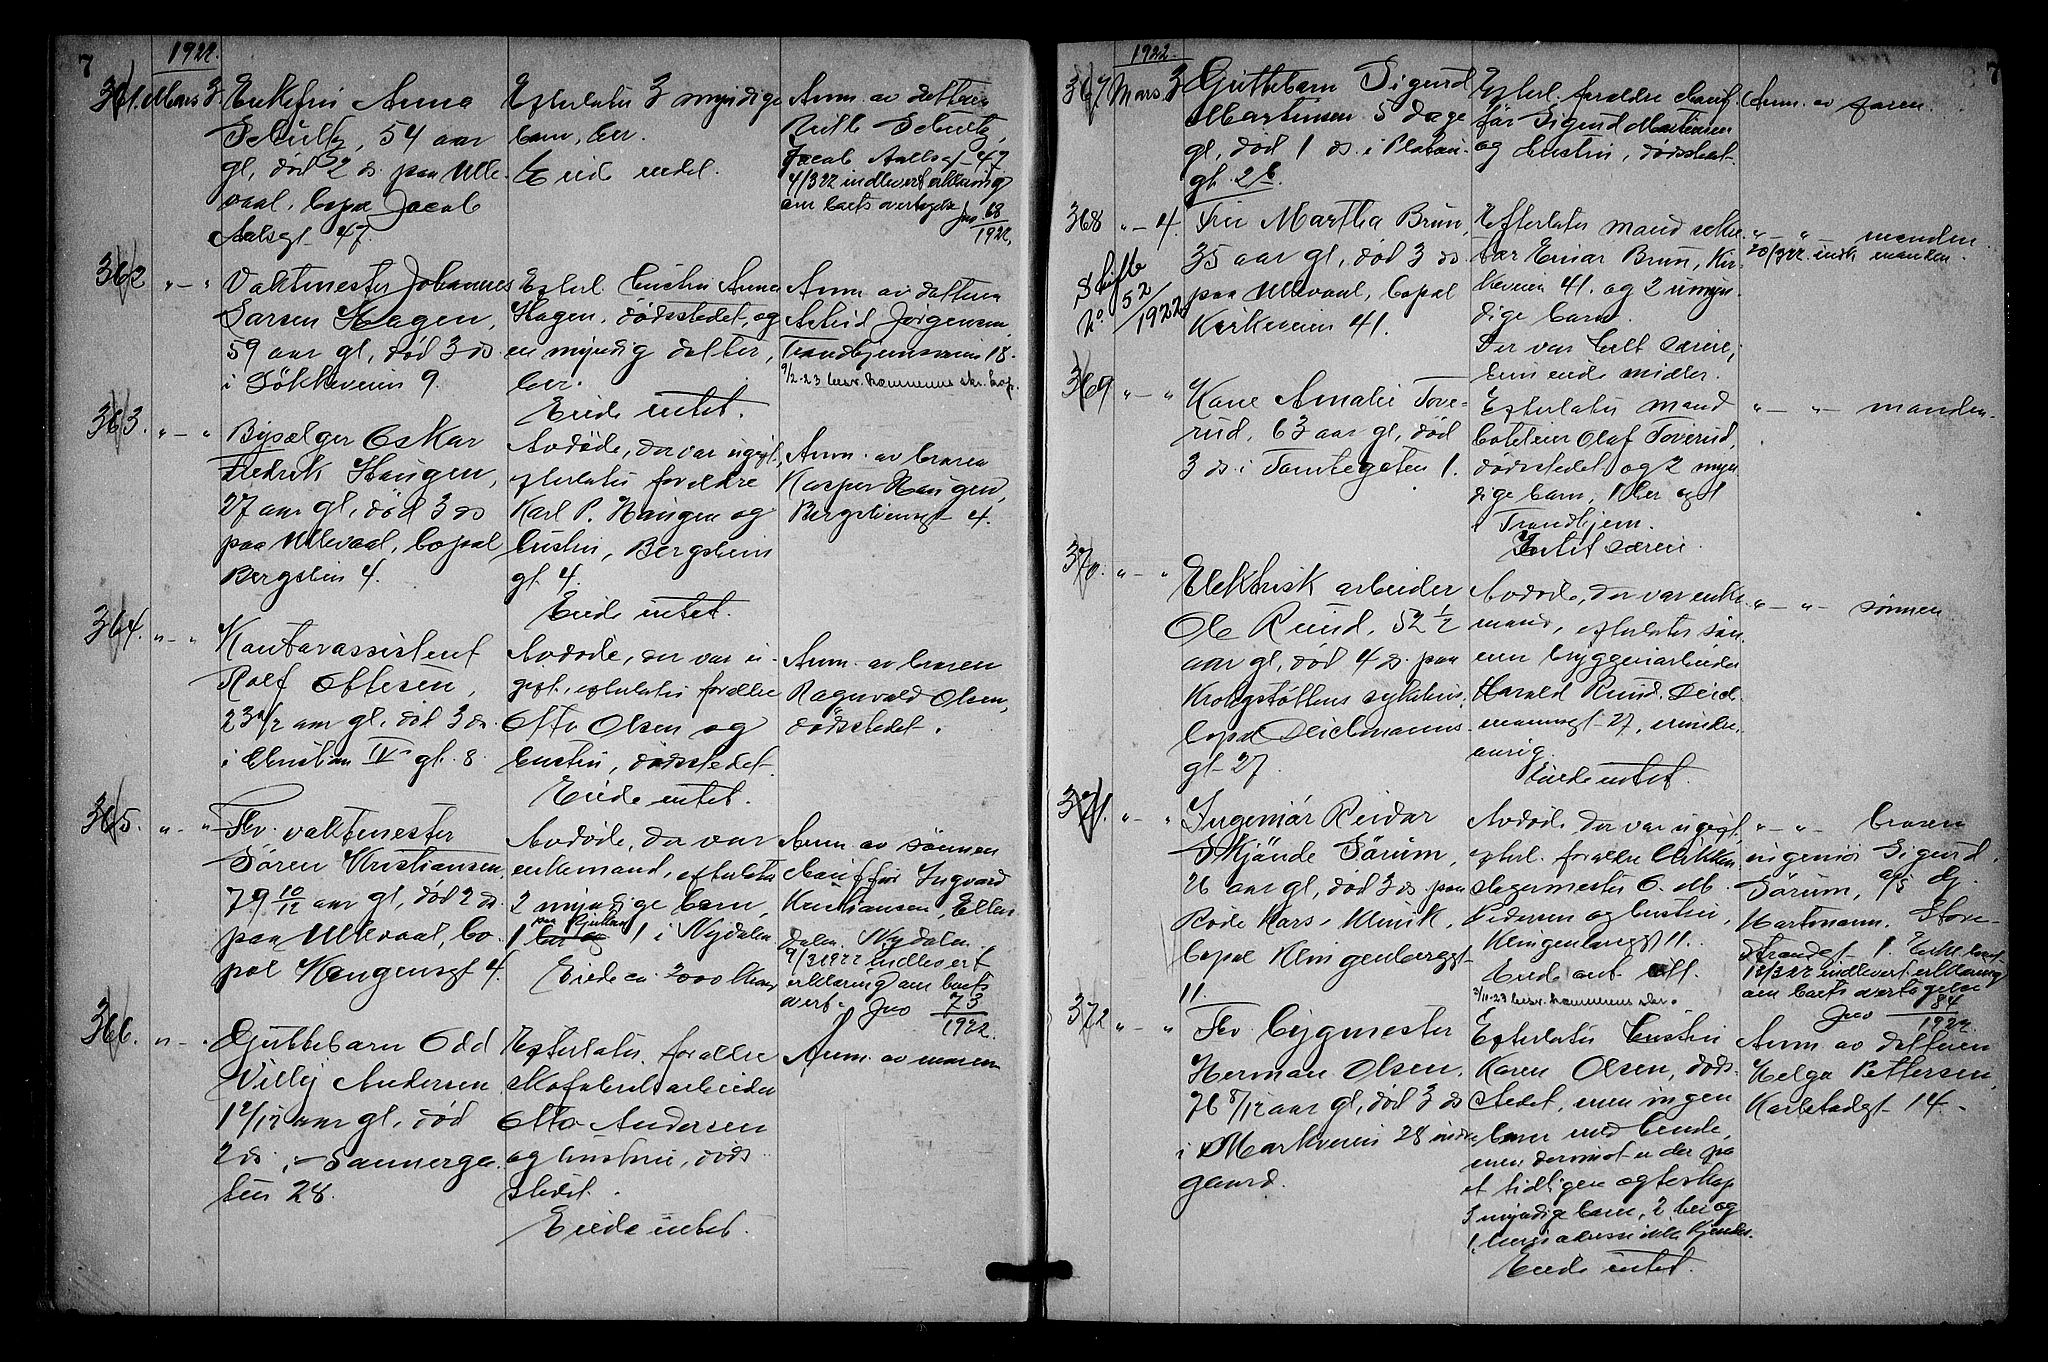 7
1922.
361. Mars 3. Enkefru Anna
Schultz, 54 aar
gl, død 2 ds. paa Ulle-
vaal, bopæl Jacob
Aalsgt 47.
Efterlater 3 myndige
barn, her.
Eied intet.
Anm. av datteren
Schultz,
Jacob Aallsgt 47
4/3 22 indlevert erklæring
om boets overtagelse
Jno 68/1922.
362 " - " Vaktmester Johannes
Larsen Hagen,
59 aar gl, død 3 ds
i Løkkeveien 9.
Efterl. hustru Anna
Hagen, dødsstedet, og
en myndig datter,
her.
Eiede intet.
Anm. av datteren
Astrid Jørgensen
Trondhjemsveien 18.
9/2-23 besv. kommunens skr.
363. " - " Bysælger Oskar
Fredrik Haugen,
27 aar gl, død 3 ds
paa Ullevaal, bopæl
Bergslien 4.
Avdøde, der var ugift,
efterlater forældre
Karl P. Haugen og
hustru, Bergslien
gt 4.
Eiede intet.
Anm. av broren
Kasper Haugen,
Bergsliensgt 4.
364. " - " Kontorassistent
Rolf Ottesen,
23 1/2 aar gl, død 3 ds.
i Christian IV's gt. 8.
Avdøde, der var u-
gift, efterlater forældre
Otto Olsen og
hustru, dødsstedet.
Eiede intet.
Anm. av broren
Ragnvald Olsen,
dødsstedet.
365. " - " Fhv. vaktmester
Søren Kristiansen,
79 10/12 aar gl, død 2 ds.
paa Ullevaal, bo-
pæl Kongensgt 4.
Avdøde, der var
enkemand, efterlater
2 myndige barn,
paa Rjukan
1 her og 1 i Nydalen
Eiede ca. 2000 Kroner
Anm. av sønnen
chauffør Ingvard
Kristiansen, Ellen-
dalen. Nydalen.
9/3 1922 indlevert
erklæring om boets
overt. Jno 73/1922.
366. " - " Guttebarn Odd
Willy Andersen
1 2/12 aar gl, død
2 ds. i Sannerga-
ten 28.
Efterlater forældre
skofabrikarbeider
Otto Andersen
og hustru, døds-
stedet.
Eiede intet.
Anm. av moren
1922.
7
367 Mars. 3 Guttebarn Sigurd
Martinsen 5 dage
gl, død 1 ds. i Platou-
gt. 26.
Efterl. forældre chauf-
før Sigurd Martinsen
og hustru, dødsstedet.
Anm. av faren.
368 " - 4. Fru Martha Brun,
35 aar gl, død 3 ds
paa Ullevaal, bopæl
Kirkeveien 41.
Skifte
No 52/1922
Efterlater mand sekre-
tær Einar Brun, Kir-
keveien 41. og 2 umyn-
dige barn.
Der var helt særeie,
hun eiede midler.
" - " - manden.
20/3 22 indk. manden.
369 " - " Kone Amalie Tove-
rud, 63 aar gl, død
3 ds. i Tomtegaten 1.
Efterlater mand
Olaf Toverud,
dødsstedet og 2 myn-
dige barn, 1 her og 1
i Trondhjem.
Intet særeie.
" - " - manden.
370. " - " Elektrisk arbeider
Ole Ruud, 52 1/2
aar gl, død 4 ds. paa
Krohgstøttens sykehus,
bopæl Deichmanns
gt 27.
Avdøde, der var enke-
mand, efterlater søn-
nen bryggeriarbeider
Harald Ruud. Deich-
mannsgt 27, mindre-
aarig.
Eiede intet.
" - " - sønnen
371. " - " Ingeniør Reidar
Skjønde Sørum,
26 aar gl, død 3 ds. paa
Røde Kors Klinik,
bopæl Klingenberggt
11.
Avdøde der var ugift,
efterl. forældre
slagermester O. M.
Pedersen og hustru,
Klingenberggt 11.
Eiede ant. litt.
3/11-23 besv. kommunens skr.
" - " - broren
ingeniør Sigurd
Sørum, a/s Dj.
Hartmann. Store-
Strandgt 1.
13/3 22 indlevert erklæring
om boets overtagelse
Jno 84/1922
372 " - " Fhv. bygmester
Herman Olsen,
76 8/12 aar gl, død 3 ds
i Markveien 28 indre
gaard.
Efterlater hustru
Karen Olsen, døds-
stedet, men ingen
barn med hende,
men derimot er der paa
et tidligere egteskap
3 myndige barn, 2 her og
1, hvis adresse ikke kjendes.
Eiede intet.
Anm. av datteren
Helga Pettersen,
Karlstadgt 14.